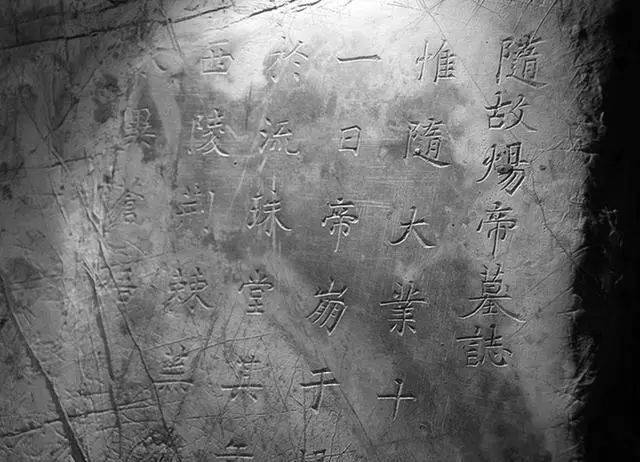 隨故煬帝墓誌
惟隨大業十
一日帝崩于
於流珠堂其
西陵荆棘蕪
異蒼梧